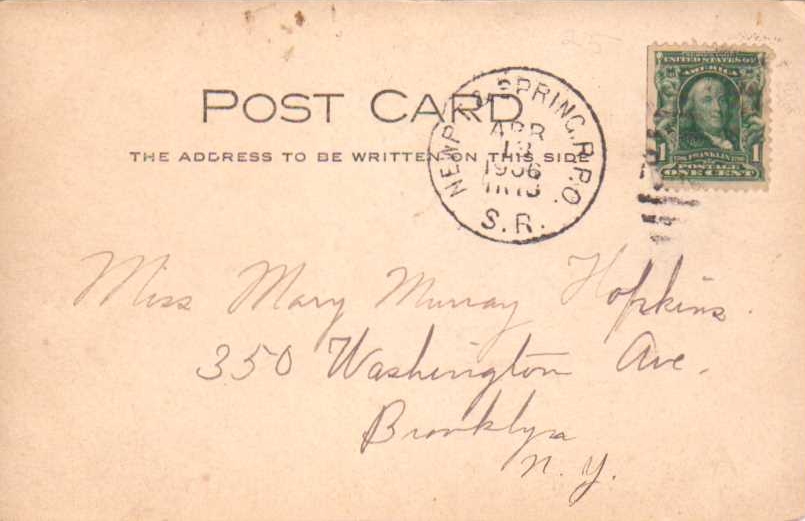 POST CARD
THE ADDRESS TO BE WRITTEN ON THIS SIDE
NEWP. & SPRING. R.P.O.
APR
1906
S.R.
UNITED STATES OF
AMERICA
1 FRANKLIN 1
POSTAGE
ONE CENT
Miss Mary Murray Hopkins.
350 Washington Ave.
Brooklyn
N.Y.